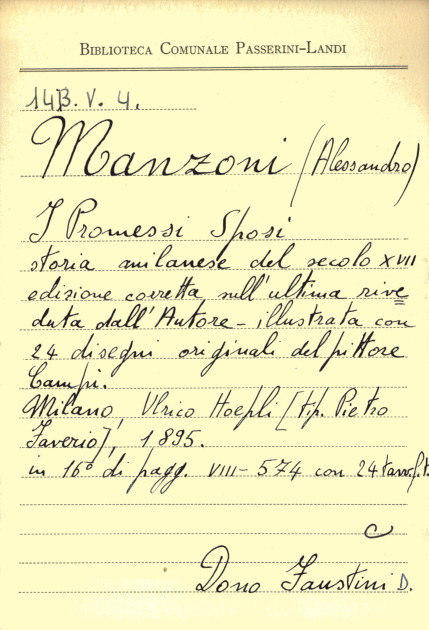 BIBLIOTECA COMUNALE PASSERINI-LANDI
14B. V. 4.
Manzoni (Alessandro)
I Promessi Sposi
storia milanese del secolo XVII
edizione corretta sull'ultima rive=
duta dall'Autore - illustrata con
24 disegni originali del pittore
Campi.
Milano, Ulrico Hoepli [tip. Pietro
Faverio], 1895.
in 16° di pagg. VIII-574 con 24 tavv. f.t.
C
Dono Faustini D.